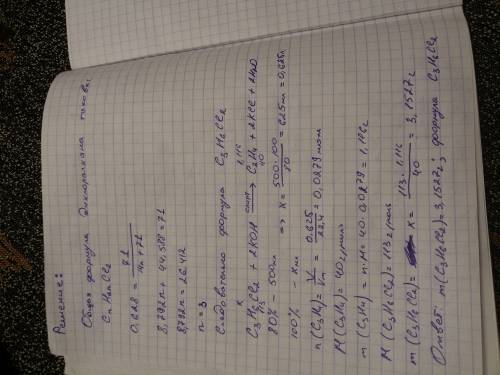 Решение:
Общая формула дихлоралкана такова:
CnH2nCl2
0.628 = 71 / 14n+71
8,792n + 44,588 = 71
8,792n = 26,412
n = 3
Следовательно формула C3H6Cl2
x 1,116
C3H6Cl2 + 2KOH спирт→ C3H4 + 2KCl + 2H2O
113 40
80% – 500мл
100% – xмл => x = 500·100 / 80 = 625мл = 0,625л
n(C3H4) = V/Vm = 0.625 / 22,4 = 0,0279 моль
M(C3H4) = 40 г/моль
m(C3H4) = n·M = 40·0.0279 = 1,116г
M(C3H6Cl2) = 113 г/моль
m(C3H6Cl2) = x = 113·1,116 / 40 = 3,1527г
Ответ: m(C3H6Cl2) = 3,1527г; формула C3H6Cl2